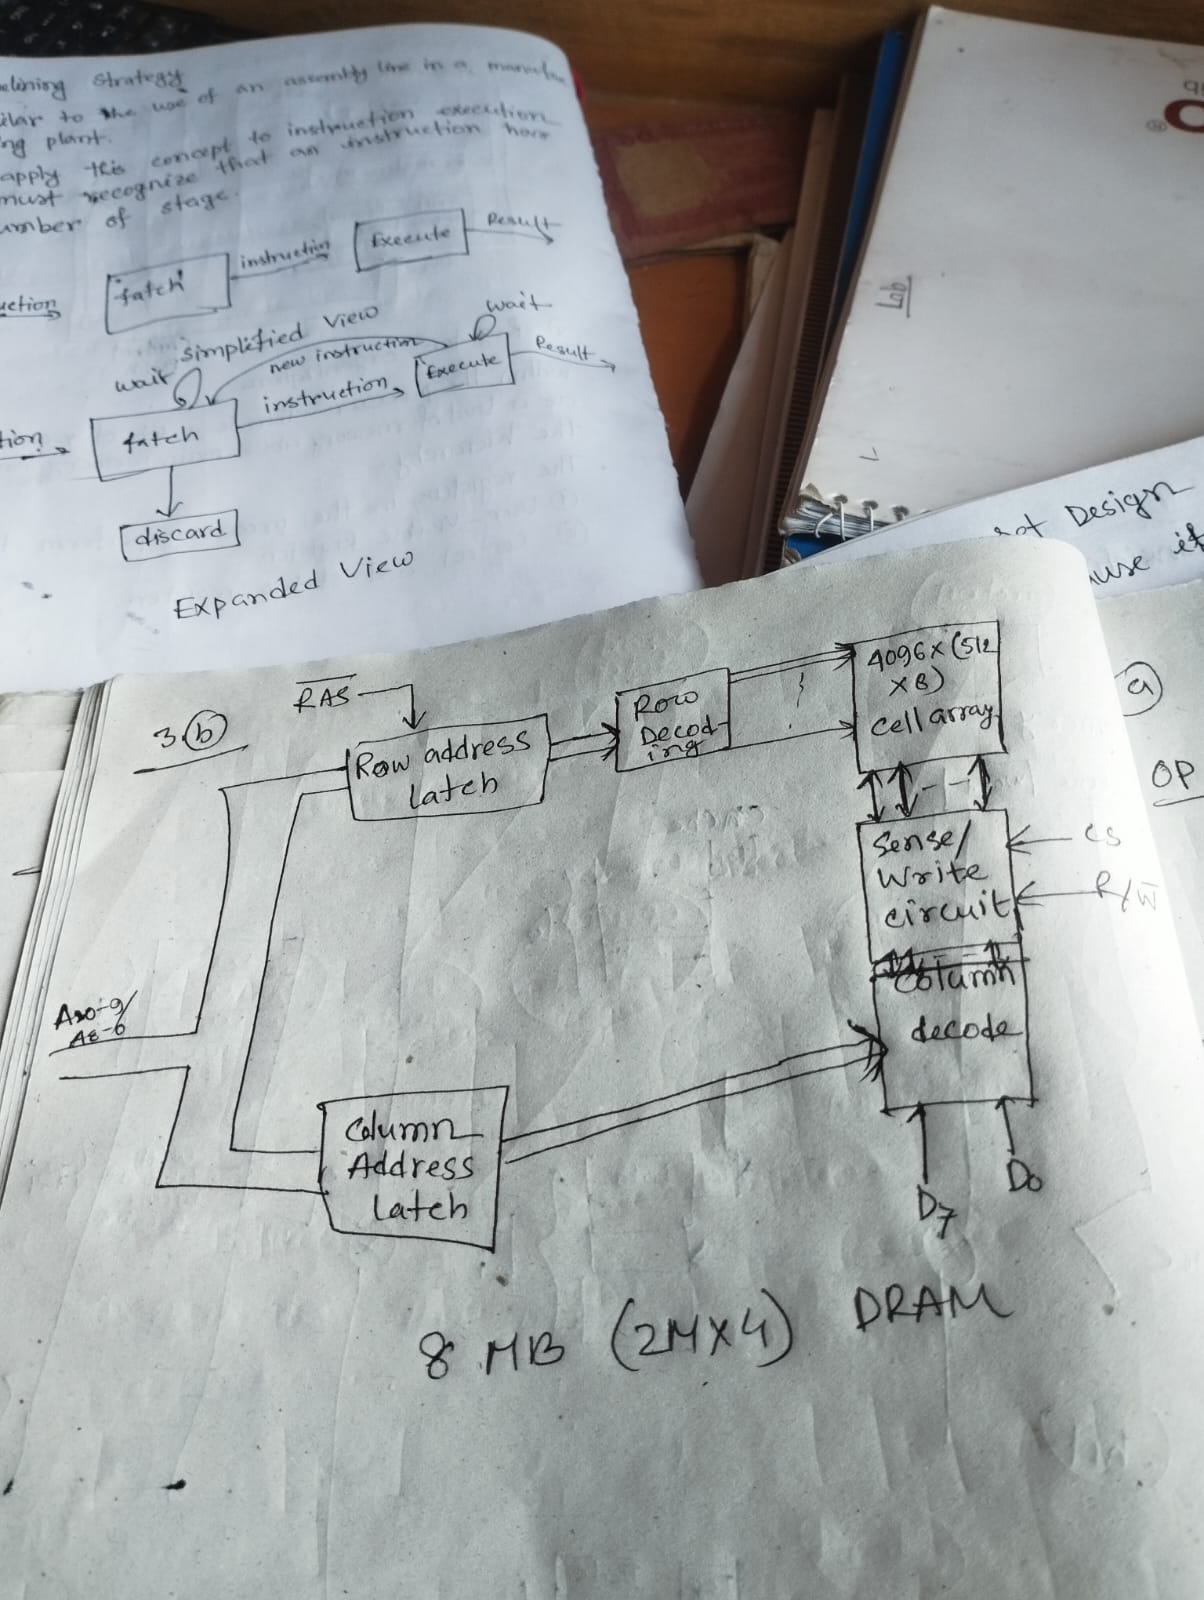 strategy
to the use of an assembly line in a
plant.
apply this concept to instruction execution
must recognize that an instruction have
of stage.
fatch
instruction
Execute
Result
simplified View
wait
new instruction
wait
fatch
instruction
Execute
Result
discard
Expanded View
Lab
Design
it
3.(b)
RAS
Row address
latch
Row
Decod-
ing
4096x(512
x8)
cell array
Sense/
Write
circuit
CS
R/W
Column
decode
A8-0
Column
Address
Latch
D7
D0
8 MB (2Mx4) DRAM
(a)
OP